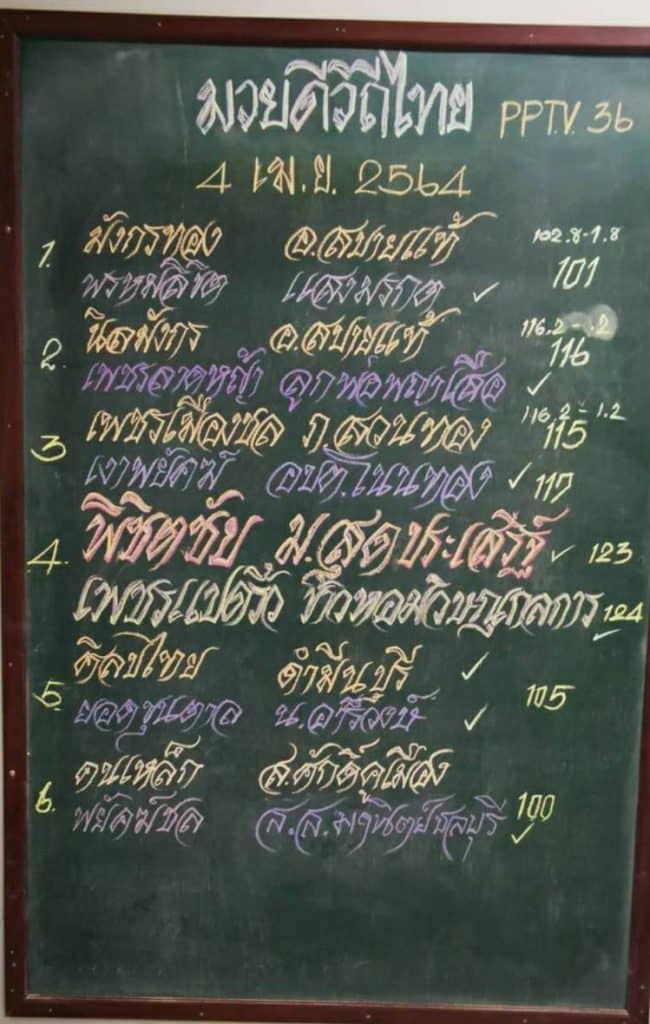 มวยดีวิถีไทย PPTV. 36
4 เม.ย. 2564
1. มังกรทอง อ.สบายแท้ 102.8-1.8
พรหมลิขิต แสงมรกต ✓ 101
2. นิลมังกร อ.สบายแท้ 116.2 - .2
116
เพชรลาดหญ้า ลูกพ่อพญาเสือ ✓
3 เพชรเมืองชล ภ.สวนทอง 116.2-1.2
115
เงาพยัคฆ์ อบต.โนนทอง ✓ 117
4. พิชิตชัย ม.สุดประเสริฐ ✓ 123
เพชรแปดริ้ว 124 ✓
5. ศิลปไทย ดำมีนบุรี ✓
105
ยอดขุนตาล น.อริวงษ์ ✓
6. คนเหล็ก ส.ศักดิ์คูเมือง
พยัคฆ์ชล ชลบุรี 100 ✓